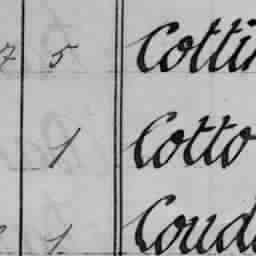 7 5 Cottin
1 Cotto
1 Coud